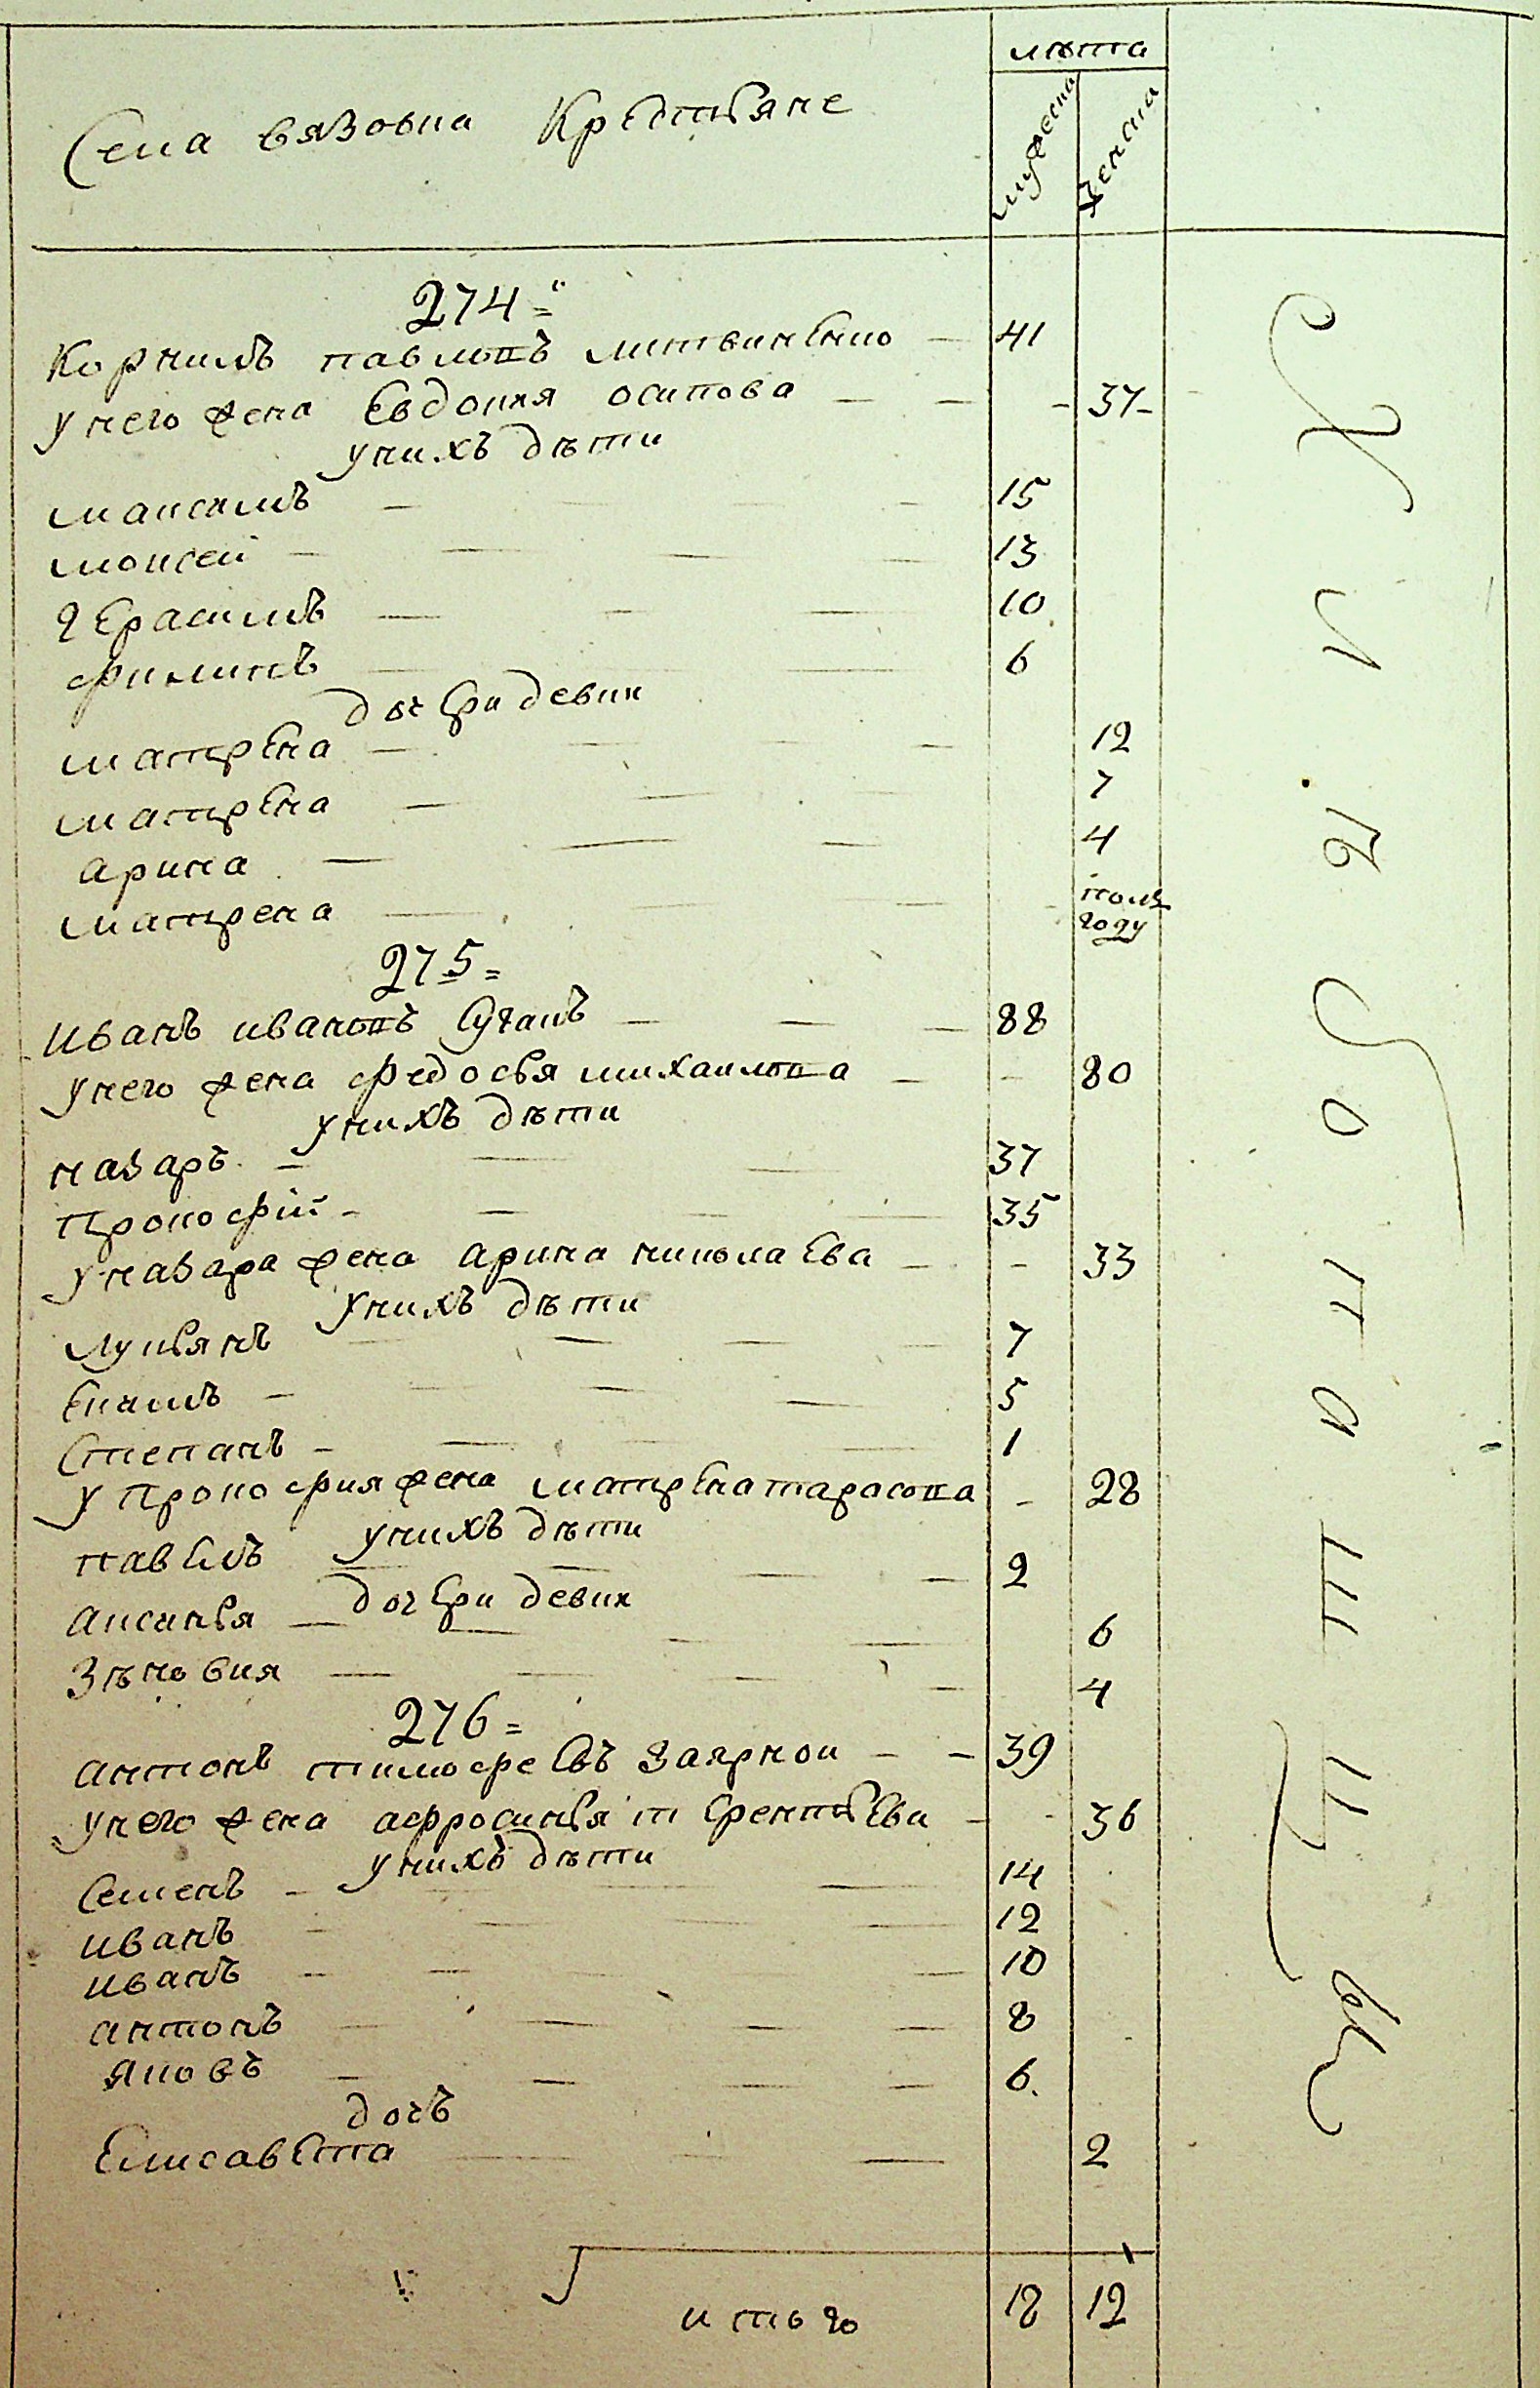 лѣта
Села вязовка Крестьяне
мужеска
женска
274
Корнилъ павловъ литвиненко 41
у него жена Евдокия осипова 37
у нихъ дѣти
максимъ 15
моисей 13
герасимъ 10
филипъ 6
дочери девки
матрена 12
матрена 7
арина 4
матрена полъ году
275
иванъ ивановъ сучакъ 88
у него жена федосья михаилова 80
у нихъ дѣти
назаръ 37
прокофій 35
у назара жена арина николаева 33
у нихъ дѣти
лукьянъ 7
Екимъ 5
степанъ 1
у прокофия жена матрена тарасова 28
у нихъ дѣти
павелъ 2
дочери девки
аксинья 6
Зѣновия 4
276
антонъ тимофеевъ Заярнои 39
у него жена афросинья терентьева 36
у нихъ дѣти
семенъ 14
иванъ 12
иванъ 10
антонъ 8
яковъ 6
дочь
Елисавета 2
итого 18 12